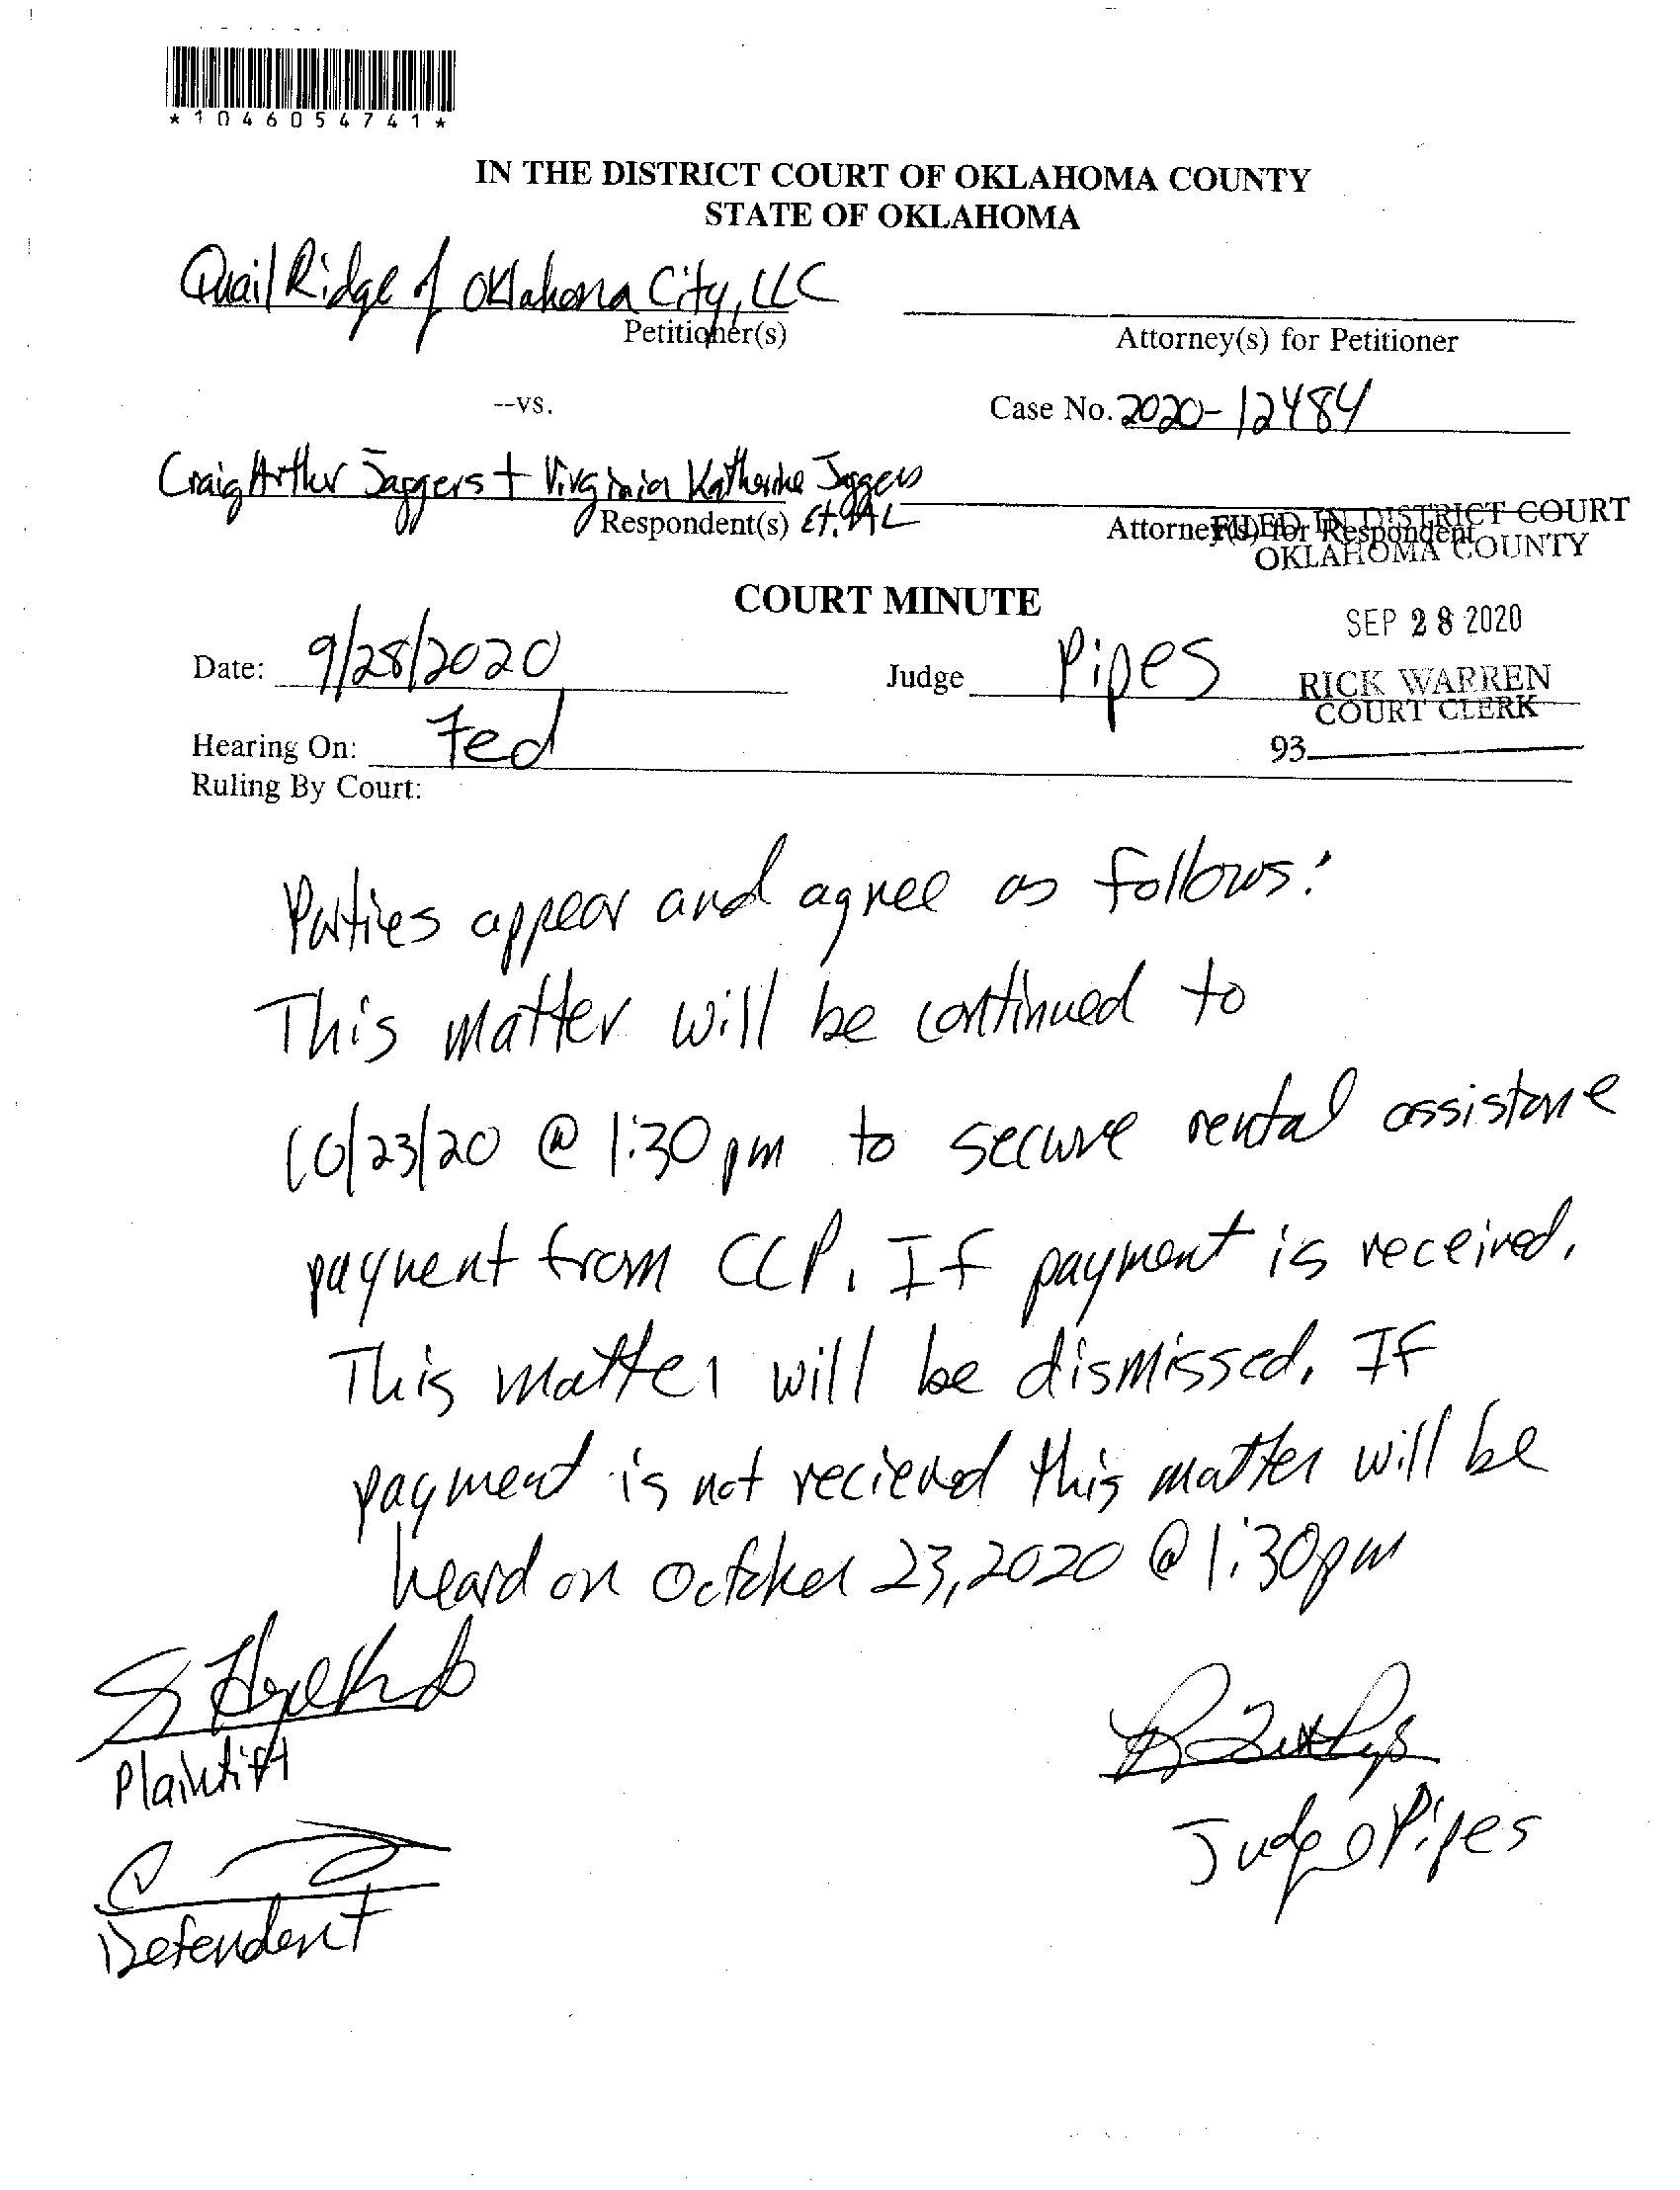 *1046054741*
IN THE DISTRICT COURT OF OKLAHOMA COUNTY
STATE OF OKLAHOMA
Quail Ridge of Oklahoma City, LLC
Petitioner(s)
Attorney(s) for Petitioner
--vs.
Case No. 2020-12484
Craig Arthur Jaggers + Virginia Katherine Jaggers
Respondent(s) Et. AL
Attorney(s) for Respondent
FILED IN DISTRICT COURT
OKLAHOMA COUNTY
COURT MINUTE
SEP 28 2020
Date: 9/28/2020
Judge Pipes
RICK WARREN
COURT CLERK
Hearing On: Fed
93
Ruling By Court:
Parties appear and agree as follows:
This matter will be continued to
10/23/20 @ 1:30 pm to secure rental assistance
payment from CCP. If payment is received,
This matter will be dismissed. If
payment is not recieved this matter will be
heard on October 23, 2020 @ 1:30pm
Plaintiff
Judge Pipes
Defendent